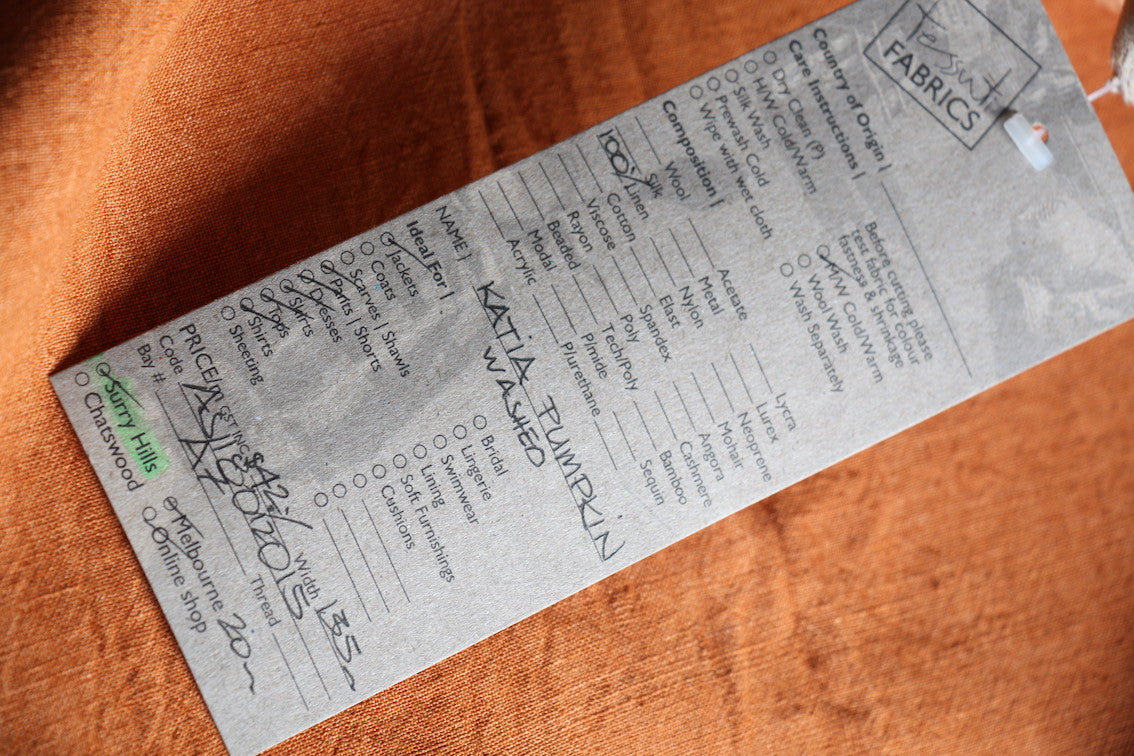 Tessuti
FABRICS
Country of Origin |
Care Instructions |
Before cutting please
test fabric for colour
fastness & shrinkage
Dry Clean (P)
H/W Cold/Warm
Silk Wash
Prewash Cold
Wipe with wet cloth
M/W Cold/Warm
Wool Wash
Wash Separately
Composition |
Wool
Silk
100% Linen
Cotton
Viscose
Rayon
Beaded
Modal
Acrylic
Acetate
Metal
Nylon
Elast
Spandex
Poly
Tech/Poly
P/mide
P/urethane
Lycra
Lurex
Neoprene
Mohair
Angora
Cashmere
Bamboo
Sequin
NAME | KATIA PUMPKIN
WASHED
Ideal For |
Jackets
Coats
Scarves | Shawls
Pants | Shorts
Dresses
Skirts
Tops
Shirts
Sheeting
Bridal
Lingerie
Swimwear
Lining
Soft Furnishings
Cushions
Width 135
Code
Bay #
Thread
Surry Hills
Chatswood
Melbourne 20m
Online shop